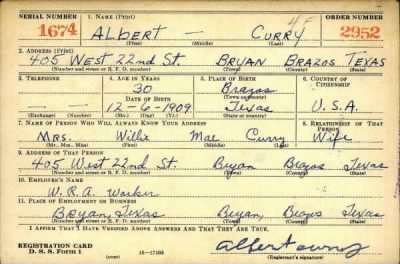 SERIAL NUMBER 1. NAME (Print) ORDER NUMBER
1674 ALBERT — CURRY 4F 2952
(First) (Middle) (Last)
2. ADDRESS (Print)
405 WEST 22nd ST. BRYAN BRAZOS TEXAS
(Number and street or R. F. D. number) (Town) (County) (State)
3. TELEPHONE 4. AGE IN YEARS 5. PLACE OF BIRTH 6. COUNTRY OF CITIZENSHIP
30 Brazos
DATE OF BIRTH (Town or county)
— 12-6-1909 Texas U.S.A.
(Exchange) (Number) (Mo.) (Day) (Yr.) (State or country)
7. NAME OF PERSON WHO WILL ALWAYS KNOW YOUR ADDRESS 8. RELATIONSHIP OF THAT PERSON
Mrs. Willie Mae Curry Wife
(Mr., Mrs., Miss) (First) (Middle) (Last)
9. ADDRESS OF THAT PERSON
405 West 22nd St. Bryan Brazos Texas
(Number and street or R. F. D. number) (Town) (County) (State)
10. EMPLOYER'S NAME
W.P.A. Worker
11. PLACE OF EMPLOYMENT OR BUSINESS
Bryan, Texas Bryan, Brazos Texas
(Number and street or R. F. D. number) (Town) (County) (State)
I AFFIRM THAT I HAVE VERIFIED ABOVE ANSWERS AND THAT THEY ARE TRUE.
REGISTRATION CARD
D. S. S. Form 1 (over) 16—17105 (Registrant's signature)